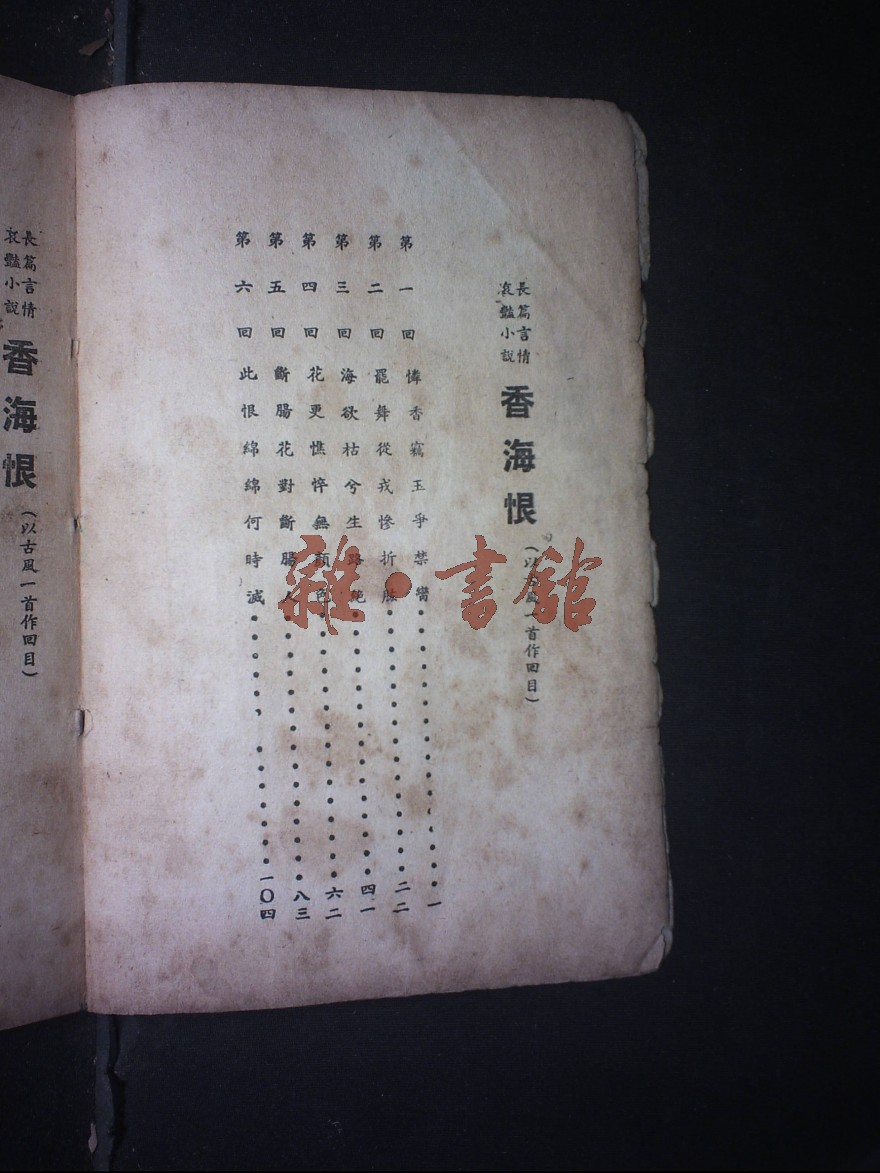 長篇言情
哀豔小說
香海恨
(以古風一首作回目)
第一回 憐香竊玉爭禁臠 一
第二回 罷舞從戎慘折 二二
第三回 海欲枯兮生路絶 四一
第四回 花更憔悴無顏色 六二
第五回 斷腸花對斷腸人 八三
第六回 此恨綿綿何時滅 一〇四
長篇言情
哀豔小說
香海恨
(以古風一首作回目)
雜·書館